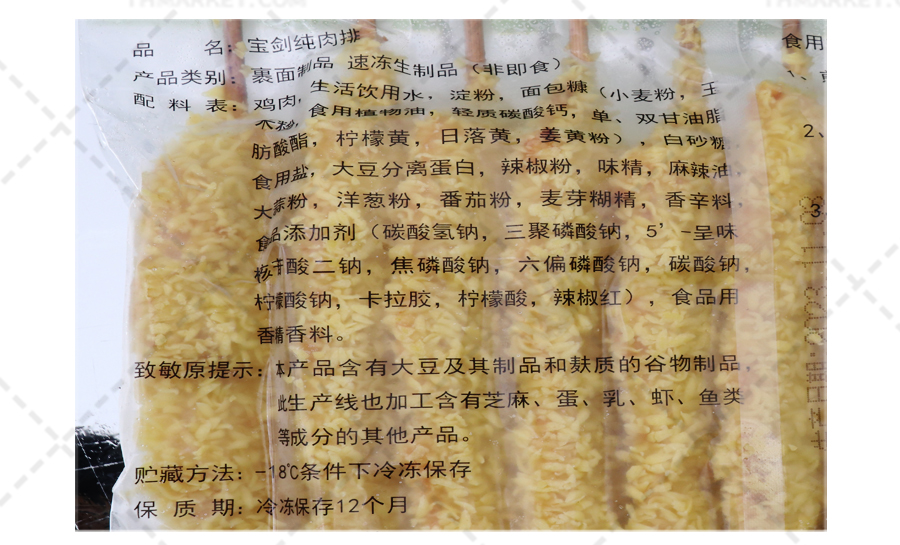 THMARKET.COM
THMARKET.COM
品 名：宝剑纯肉排
产品类别：裹面制品 速冻生制品（非即食）
配 料 表：鸡肉，生活饮用水，淀粉，面包糠（小麦粉，玉
米粉，食用植物油，轻质碳酸钙，单、双甘油脂
肪酸酯，柠檬黄，日落黄，姜黄粉），白砂糖，
食用盐，大豆分离蛋白，辣椒粉，味精，麻辣油，
大蒜粉，洋葱粉，番茄粉，麦芽糊精，香辛料，
食品添加剂（碳酸氢钠，三聚磷酸钠，5’-呈味
核苷酸二钠，焦磷酸钠，六偏磷酸钠，碳酸钠，
柠檬酸钠，卡拉胶，柠檬酸，辣椒红），食品用
香精香料。
致敏原提示：本产品含有大豆及其制品和麸质的谷物制品，
此生产线也加工含有芝麻、蛋、乳、虾、鱼类
等成分的其他产品。
贮藏方法：-18℃条件下冷冻保存
保 质 期：冷冻保存12个月
食用
1、
2、
3